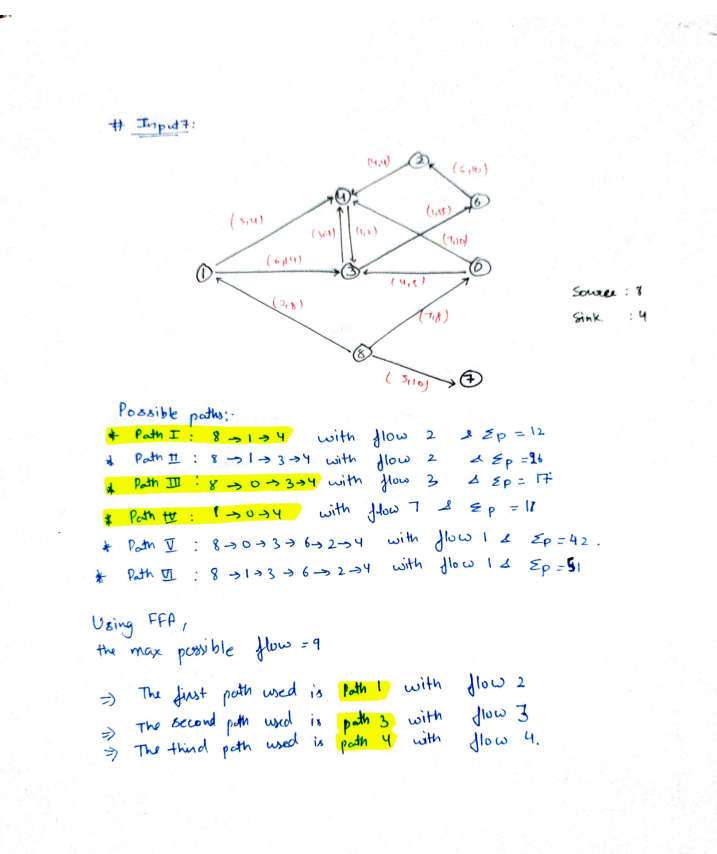 # Input 7:
(4,4)
2
(6,10)
4
6
(3,4)
(3,4)
(1,2)
(1,15)
(7,10)
(6,14)
1
3
0
(4,5)
Source : 8
(2,8)
(7,8)
Sink : 4
8
(3,10)
7
Possible paths:-
* Path I : 8 → 1 → 4 with flow 2 & Σp = 12
* Path II : 8 → 1 → 3 → 4 with flow 2 & Σp = 26
* Path III : 8 → 0 → 3 → 4 with flow 3 & Σp = 17
* Path IV : 8 → 0 → 4 with flow 7 & Σp = 18
* Path V : 8 → 0 → 3 → 6 → 2 → 4 with flow 1 & Σp = 42.
* Path VI : 8 → 1 → 3 → 6 → 2 → 4 with flow 1 & Σp = 51
Using FFA,
the max possible flow = 9
⇒ The first path used is Path 1 with flow 2
⇒ The second path used is path 3 with flow 3
⇒ The third path used is path 4 with flow 4.